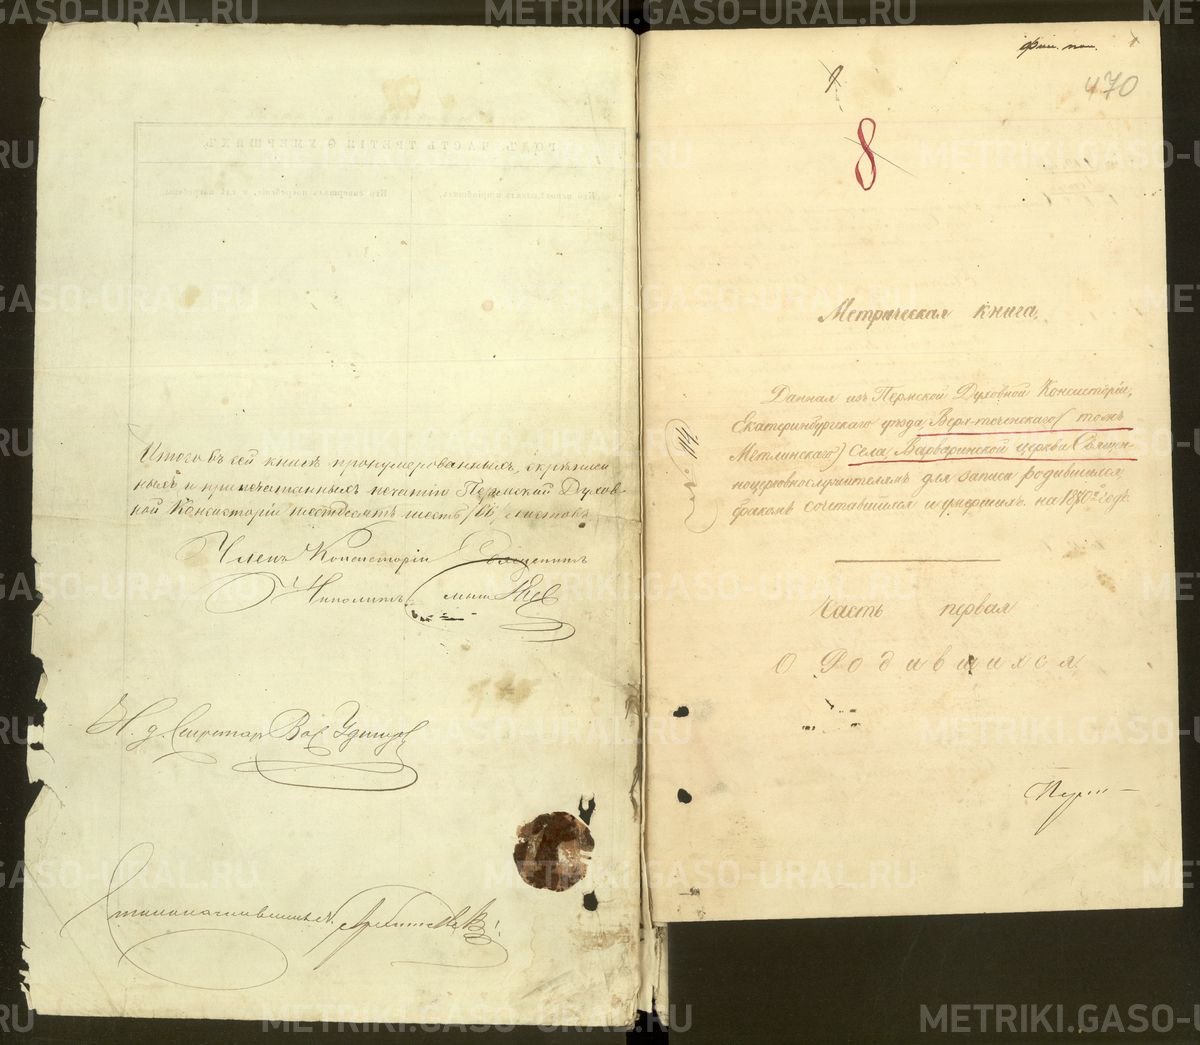 Итого въ сей книгѣ пронумерованныхъ, скрѣплен
ныхъ и припечатанныхъ печатію Пермской Духов-
ной Консисторіи шестьдесятъ шесть /66/ листовъ.
Членъ Консисторіи Священникъ
Ипполитъ
И. д. Секретаря
Столоначальникъ
470
8
Метрическая книга,
Данная изъ Пермской Духовной Консисторіи,
Екатеринбургскаго уѣзда, Верх-теченскаго (тожъ
Метлинскаго) села Варваринской церкви Священ-
ноцерковнослужителямъ для записи родившихся,
бракомъ сочетавшихся и умершихъ на 1870й годъ.
Часть первая
О Родившихся